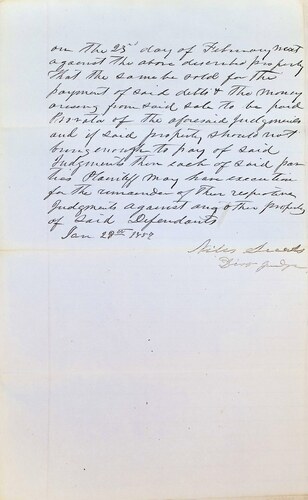 on the 25th day of February next
against the above described property
that the same be sold for the
payment of said debts & the money
arising from said sale to be paid
Prorata of the aforesaid Judgments
and if said property should not
bring enough to pay of said
Judgments then each of said par
ties Plaintiff may have execution
for the remainder of their respective
Judgments against any other property
of said Defendants
Jan 28th
Dist Judge